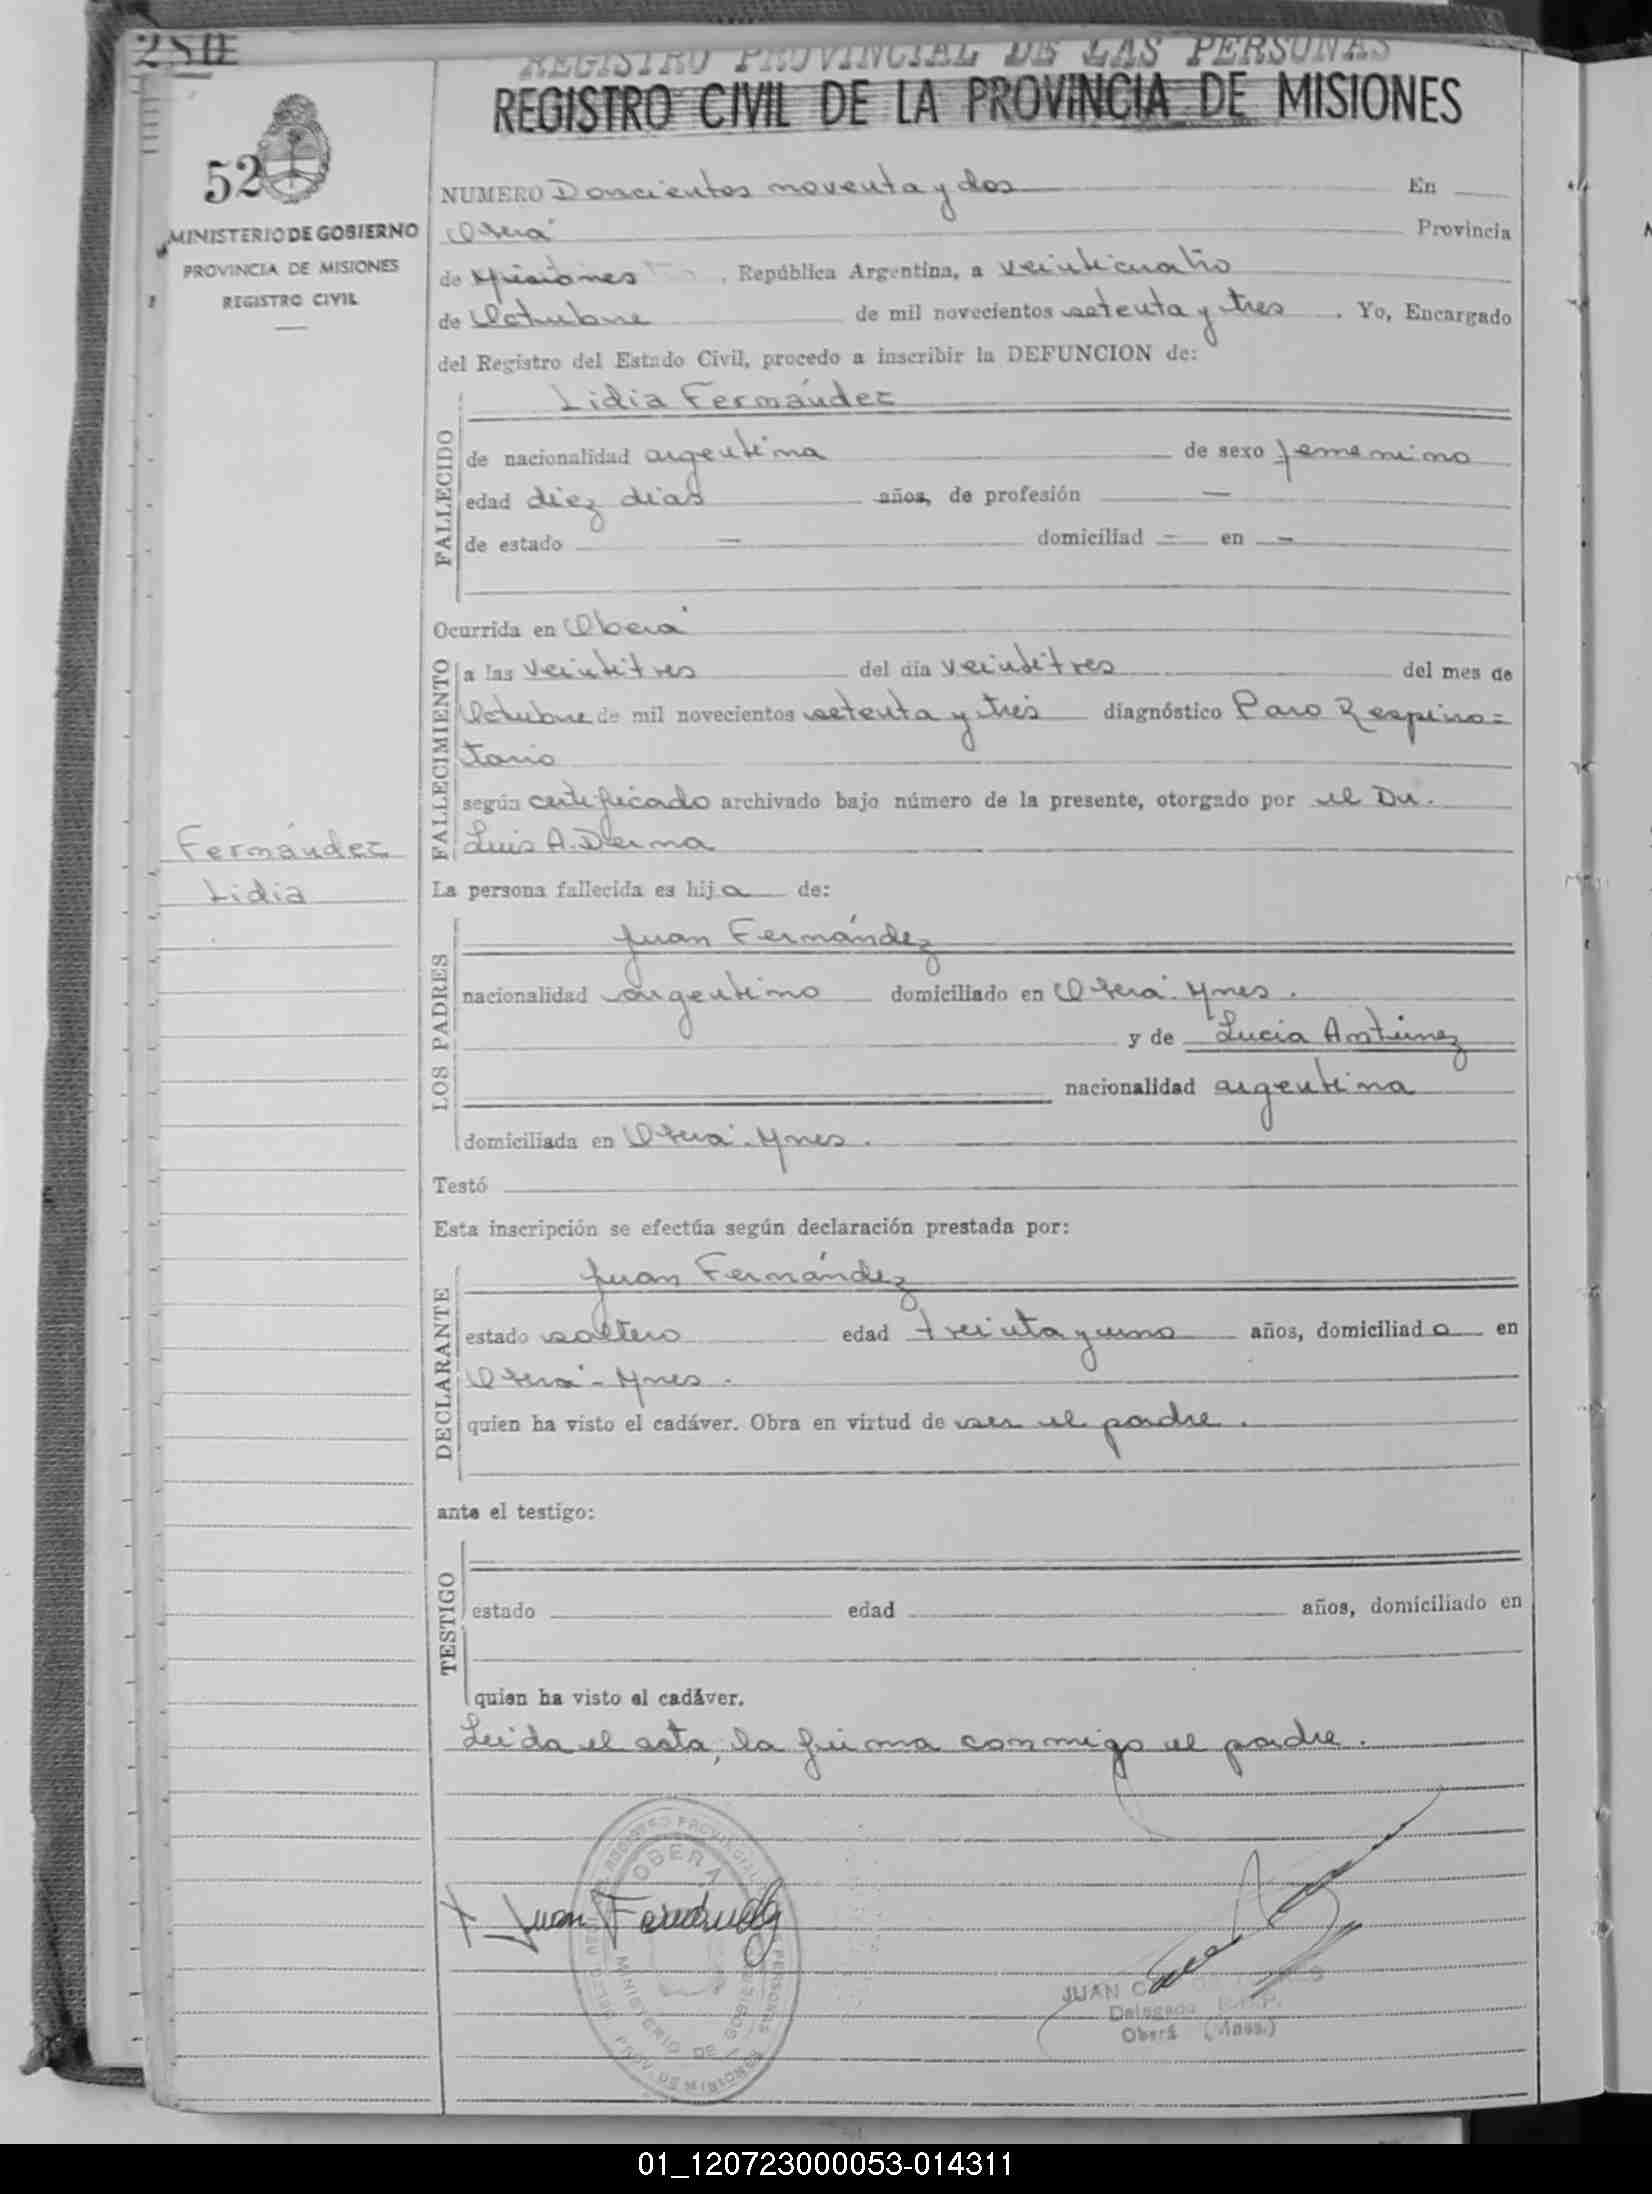 280
REGISTRO PROVINCIAL DE LAS PERSONAS
REGISTRO CIVIL DE LA PROVINCIA DE MISIONES
52
MINISTERIO DE GOBIERNO
PROVINCIA DE MISIONES
REGISTRO CIVIL
NUMERO Doscientos noventa y dos En
Oberá Provincia
de Misiones, República Argentina, a veinticuatro
de Octubre de mil novecientos setenta y tres. Yo, Encargado
del Registro del Estado Civil, procedo a inscribir la DEFUNCION de:
Lidia Fernández
FALLECIDO
de nacionalidad argentina de sexo femenino
edad diez dias años, de profesión —
de estado — domiciliad — en —
Ocurrida en Oberá
FALLECIMIENTO
a las veintitres del día veintitres del mes de
Octubre de mil novecientos setenta y tres diagnóstico Paro Respira=
torio
según certificado archivado bajo número de la presente, otorgado por el Dr.
Luis A. Derna
Fernández
Lidia
La persona fallecida es hija de:
LOS PADRES
Juan Fernández
nacionalidad argentino domiciliado en Oberá. Mnes.
y de Lucia Antúnez
nacionalidad argentina
domiciliada en Oberá. Mnes.
Testó
Esta inscripción se efectúa según declaración prestada por:
DECLARANTE
Juan Fernández
estado soltero edad treinta y uno años, domiciliado en
Oberá - Mnes.
quien ha visto el cadáver. Obra en virtud de ser el padre.
ante el testigo:
TESTIGO
estado edad años, domiciliado en
quien ha visto el cadáver.
Leida el acta, la firma conmigo el padre.
OBERÁ
MINISTERIO DE GOBIERNO
x Juan Fernández
JUAN C.
Delegado R.P.P.
Oberá (Mnes.)
01_120723000053-014311